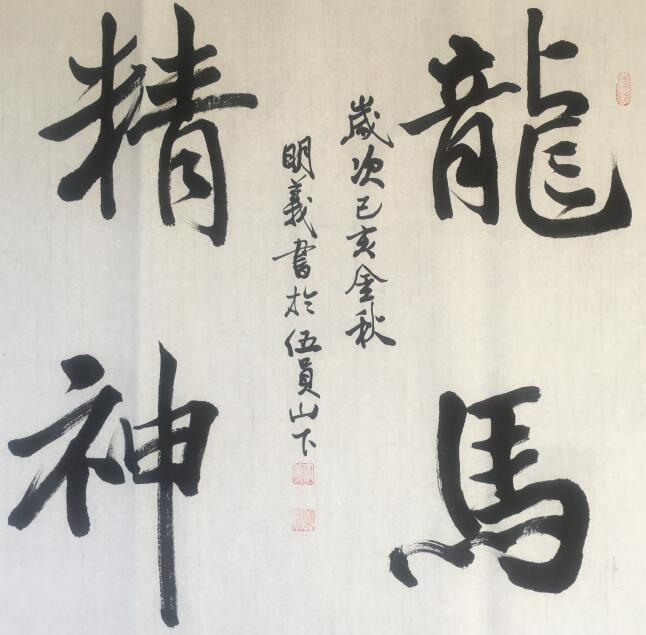 龍馬
精神
歲次己亥金秋
明義書於伍員山下